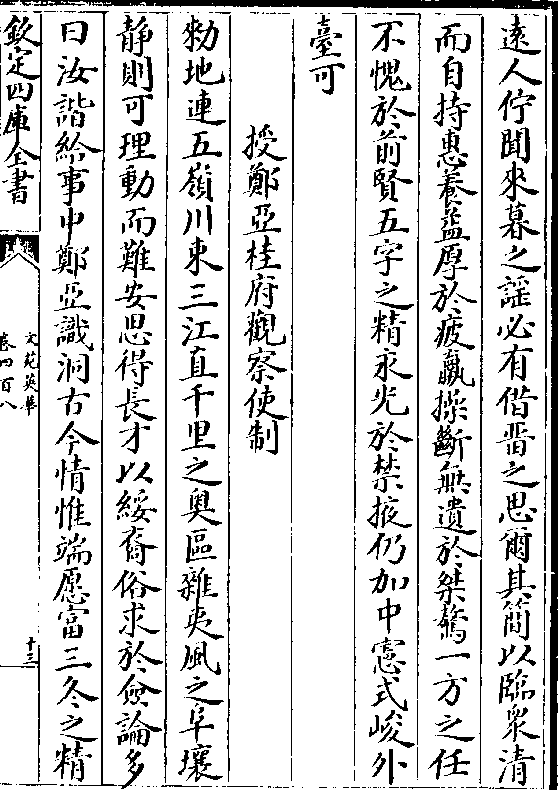 遠人佇聞來暮之謡必有借㬜之思爾其簡以臨衆清
而自持惠養益厚於疲羸操斷無遺於桀驁一方之任
不愧於前賢五字之精永光於禁掖仍加中憲式峻外
臺可
授鄭亞桂府觀察使制
勑地連五嶺川束三江直千里之奥區雜夷風之阜壤
静則可理動而難安思得長才以綏裔俗求於僉論多
曰汝諧給事中鄭亞識洞古今情惟端愿富三冬之精
欽定四庫全書
文苑英華
卷四百八
十三